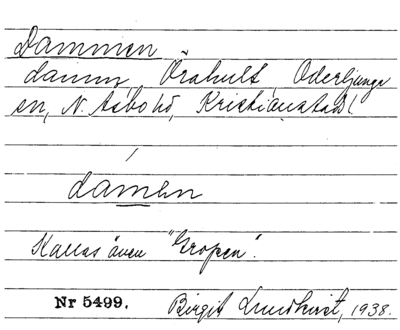 Dammen
damm, Örahult, Oderljunga
sn, N. Åsbo hd, Kristianstad l
damen
Kallas även "Gropen".
Nr 5499. Birgit Lundkvist, 1938.